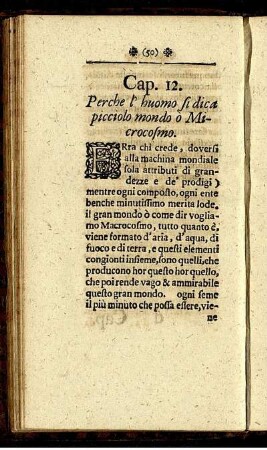 (50)
Cap. 12.
Perche l'huomo si dica
picciolo mondo ò Mi-
crocosmo.
ERra chi crede, doversi
alla machina mondiale
sola attributi di gran-
dezze e de' prodigi)
mentre ogni composto, ogni ente
benche minutissimo merita lode.
il gran mondo ò come dir voglia-
mo Macrocosmo, tutto quanto è,
viene formato d'aria, d'aqua, di
fuoco e di terra, e questi elementi
congionti insieme, sono quelli, che
producono hor questo hor quello,
che poi rende vago & ammirabile
questo gran mondo. ogni seme
il più minuto che possa essere, vie-
ne